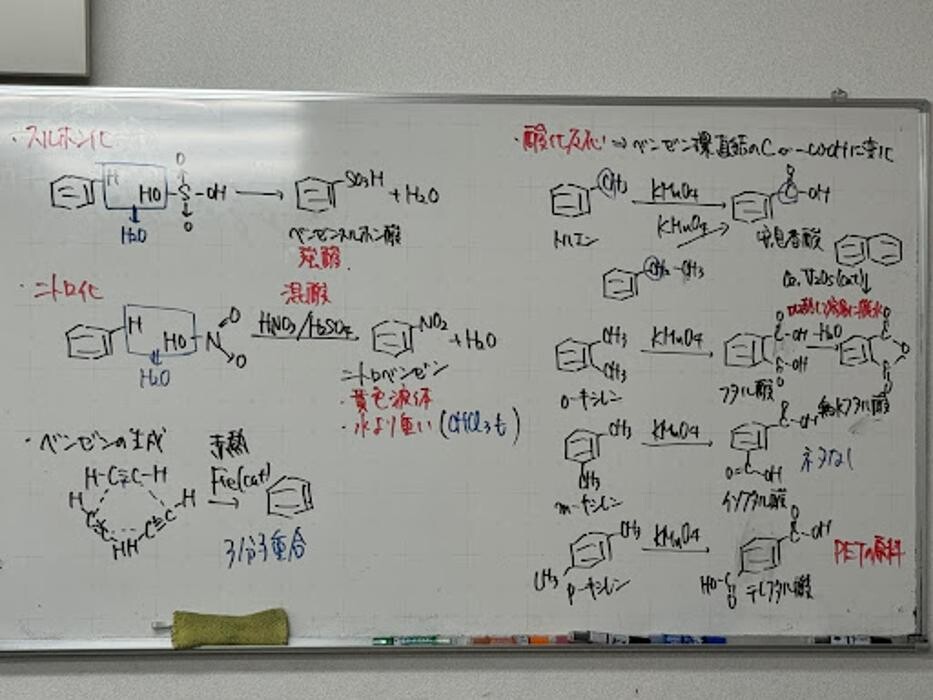 ・スルホン化
H HO-S-OH → SO3H + H2O
O
O
H2O
ベンゼンスルホン酸
強酸
・ニトロ化
混酸
H HO-N HNO3/H2SO4 → NO2 + H2O
O
O
H2O
ニトロベンゼン
・黄色液体
・水より重い (CHCl3も)
・ベンゼンの生成
赤熱
H-C≡C-H Fe(cat)
H C≡C H
H C≡C H
3分子重合
・酸化反応 ⇒ ベンゼン環直結のCが-COOHに変化
CH3 KMnO4 → C-OH
O
トルエン KMnO4 安息香酸
CH2-CH3
O2, V2O5(cat)↓
CH3 KMnO4 → C-OH -H2O →
CH3 C-OH
o-キシレン フタル酸
無水フタル酸
CH3 KMnO4 → C-OH
CH3 O=C-OH
m-キシレン イソフタル酸
CH3 KMnO4 → C-OH
CH3 HO-C
O
p-キシレン テレフタル酸
PETの原料